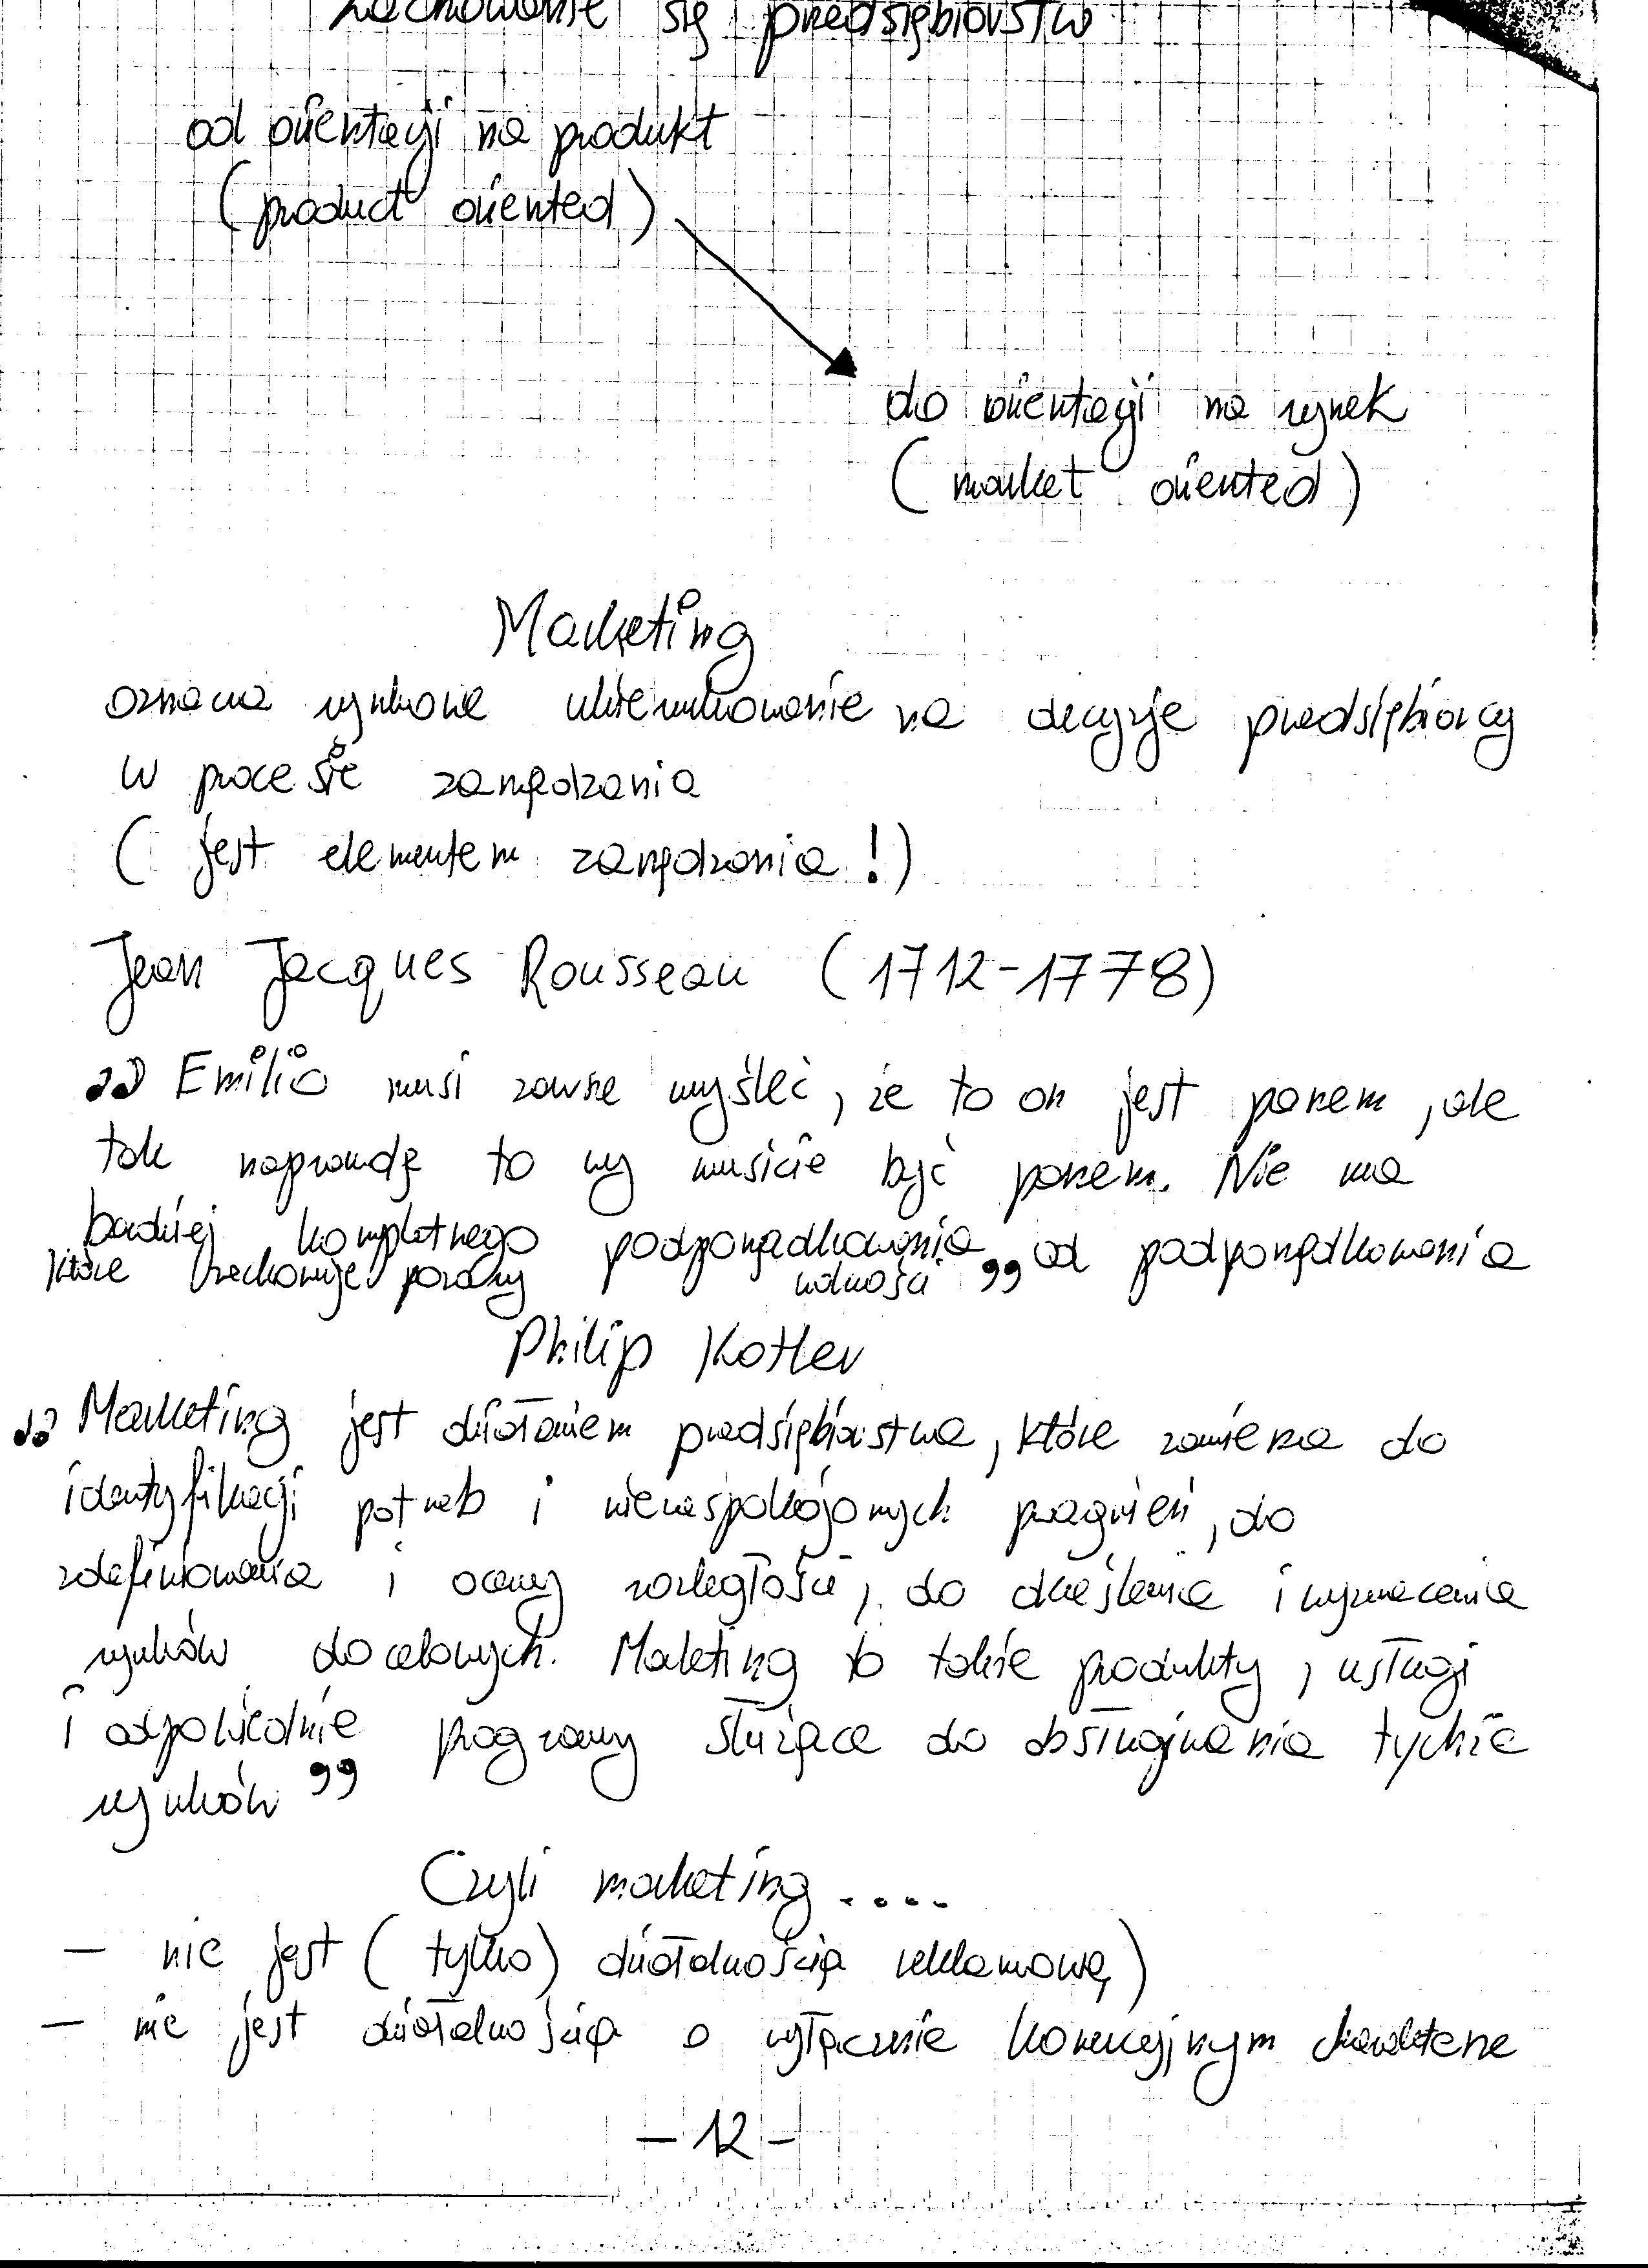 Zachowanie się przedsiębiorstw
od orientacji na produkt
(product oriented)
do orientacji na rynek
(market oriented)
Marketing
oznacza rynkowe ukierunkowanie na decyzje przedsiębiorcy
w procesie zarządzania
(jest elementem zarządzania!)
Jean Jacques Rousseau (1712-1778)
„Emilio musi zawsze myśleć, że to on jest panem, ale
tak naprawdę to wy musicie być panem. Nie ma
bardziej kompletnego podporządkowania od podporządkowania
które zachowuje pozory wolności”
Philip Kotler
„Marketing jest działaniem przedsiębiorstwa, które zmierza do
identyfikacji potrzeb i niezaspokojonych pragnień, do
zdefiniowania i oceny rozległości, do określenia i wyznaczenia
rynków docelowych. Marketing to także produkty, usługi
i odpowiednie programy służące do obsługiwania tychże
rynków”
Czyli marketing....
- nie jest (tylko) działalnością reklamową)
- nie jest działalnością o wyłącznie komercyjnym charakterze
- 12 -